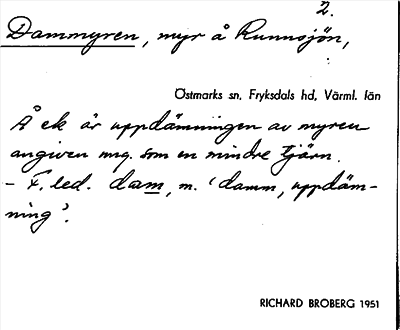 2.
Dammyren, myr å Runnsjön,
Östmarks sn, Fryksdals hd, Värml. län
Å ek är uppdämningen av myren
angiven ung. som en mindre tjärn.
– F. led. dam, m. 'damm, uppdäm-
ning'.
RICHARD BROBERG 1951